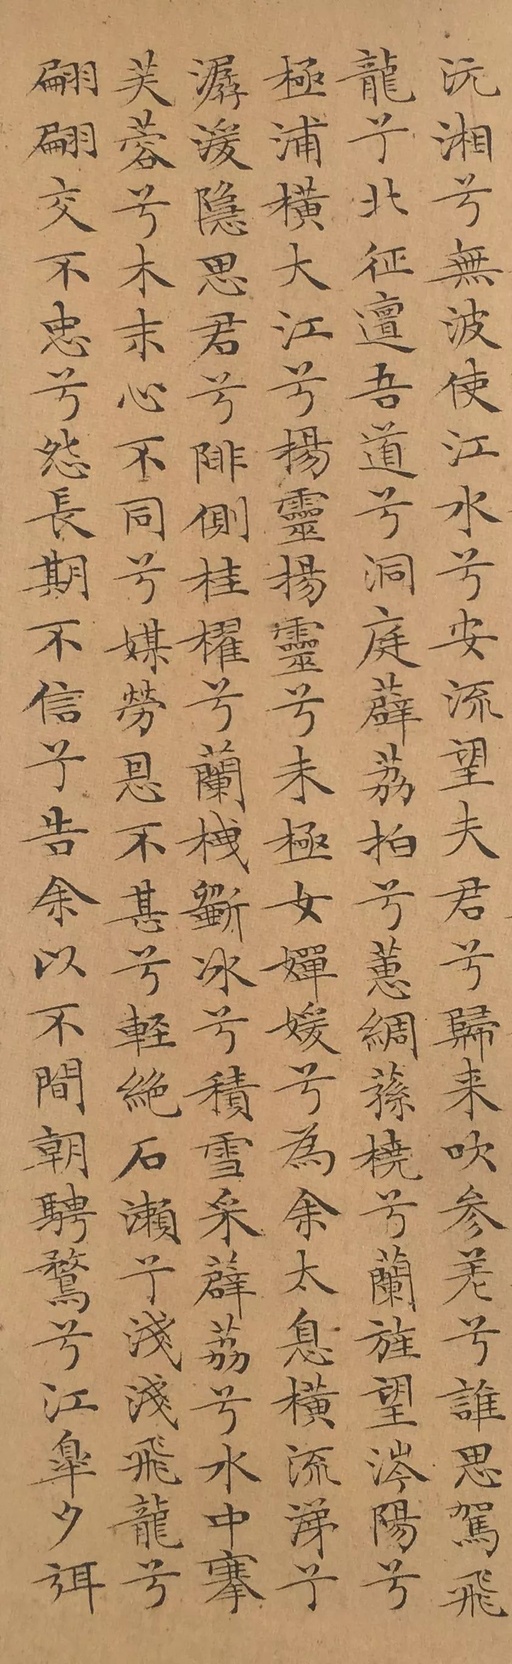 沅湘兮無波使江水兮安流望夫君兮歸来吹参差兮誰思駕飛
龍兮北征邅吾道兮洞庭薜荔拍兮蕙綢蓀橈兮蘭旌望涔陽兮
極浦橫大江兮揚靈揚靈兮未極女嬋媛兮為余太息橫流涕兮
潺湲隱思君兮陫側桂櫂兮蘭枻斲冰兮積雪采薜荔兮水中搴
芙蓉兮木末心不同兮媒勞恩不甚兮輕絕石瀨兮淺淺飛龍兮
翩翩交不忠兮怨長期不信兮告余以不閒朝騁騖兮江皋夕弭